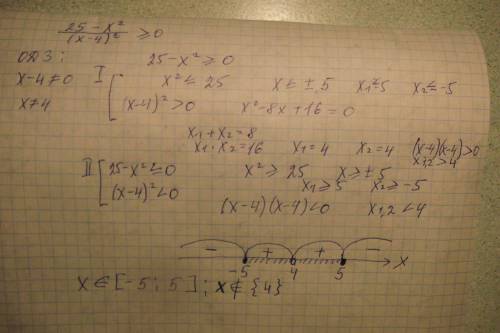 (25 - x²)/(x-4)² ≥ 0
ОДЗ:
x-4≠0
x≠4
I [ 25-x² ≥ 0
x² ≤ 25 x ≤ ±5 x₁ ≤ 5 x₂ ≤ -5
(x-4)² > 0 x²-8x+16=0
x₁+x₂=8
x₁·x₂=16 x₁=4 x₂=4 (x-4)(x-4)>0
x₁,₂>4
II [ 25-x² ≤ 0 x² ≥ 25 x ≥ ±5
x₁ ≥ 5 x₂ ≥ -5
(x-4)² < 0 (x-4)(x-4)<0 x₁,₂ < 4
- + + -
-5 4 5 x
x ∈ [-5; 5]; x ∉ {4}